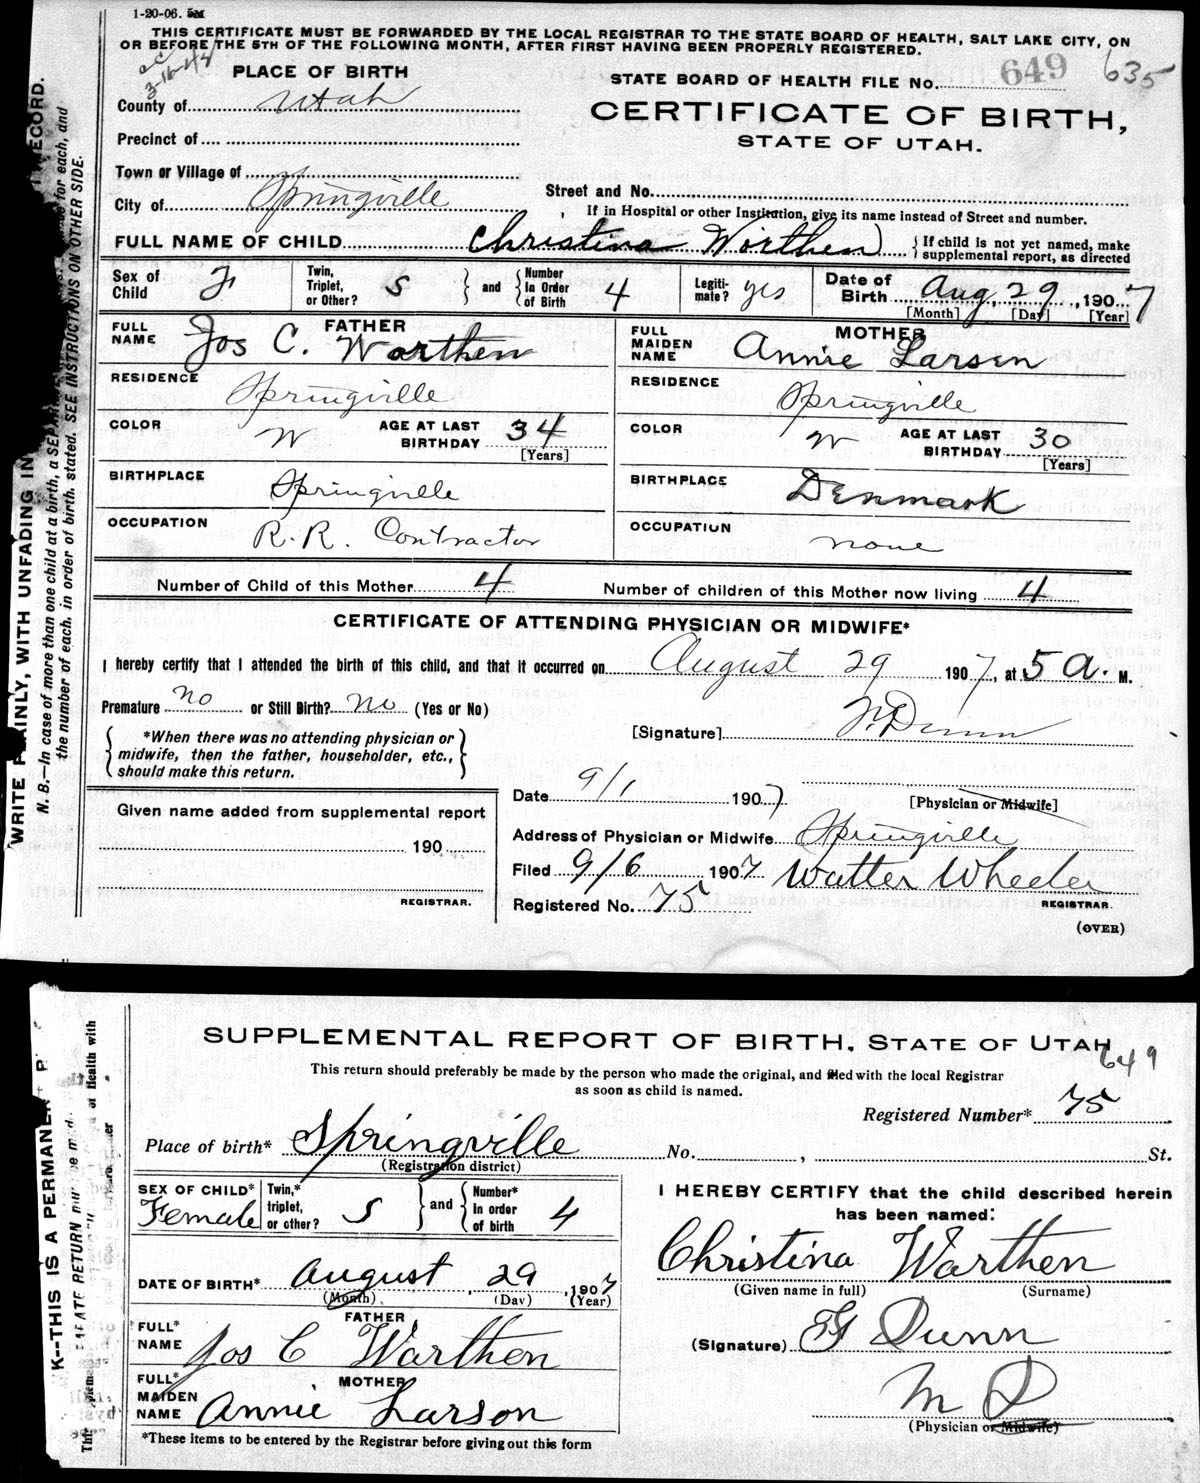 1-20-06. 5M
THIS CERTIFICATE MUST BE FORWARDED BY THE LOCAL REGISTRAR TO THE STATE BOARD OF HEALTH, SALT LAKE CITY, ON
OR BEFORE THE 5TH OF THE FOLLOWING MONTH, AFTER FIRST HAVING BEEN PROPERLY REGISTERED.
3-16-48
PLACE OF BIRTH
STATE BOARD OF HEALTH FILE No. 649 635
County of Utah
CERTIFICATE OF BIRTH,
STATE OF UTAH.
Precinct of
Town or Village of
City of Springville
Street and No.
If in Hospital or other Institution, give its name instead of Street and number.
FULL NAME OF CHILD Christina Worthen } If child is not yet named, make supplemental report, as directed
Sex of Child F Twin, Triplet, or Other? S } and { Number In Order of Birth 4 Legiti- mate? yes Date of Birth Aug, 29, 1907
[Month] [Day] [Year]
FATHER
FULL NAME Jos C. Warthen
RESIDENCE Springville
COLOR W AGE AT LAST BIRTHDAY 34
[Years]
BIRTHPLACE Springville
OCCUPATION R.R. Contractor
MOTHER
FULL MAIDEN NAME Annie Larsen
RESIDENCE Springville
COLOR W AGE AT LAST BIRTHDAY 30
[Years]
BIRTHPLACE Denmark
OCCUPATION none
Number of Child of this Mother 4 Number of children of this Mother now living 4
CERTIFICATE OF ATTENDING PHYSICIAN OR MIDWIFE*
I hereby certify that I attended the birth of this child, and that it occurred on August 29 1907, at 5 a. M.
Premature no or Still Birth? no (Yes or No)
*When there was no attending physician or
midwife, then the father, householder, etc.,
should make this return.
[Signature] Dunn
Date 9/1 1907
[Physician or Midwife]
Given name added from supplemental report
190
REGISTRAR.
Address of Physician or Midwife Springville
Filed 9/6 1907 Walter Wheeler
Registered No. 75 REGISTRAR.
(OVER)
WRITE PLAINLY, WITH UNFADING IN RECORD.
N. B.—In case of more than one child at a birth, a SEPA for each, and
the number of each, in order of birth, stated. SEE INSTRUCTIONS ON OTHER SIDE.
SUPPLEMENTAL REPORT OF BIRTH, STATE OF UTAH
649
This return should preferably be made by the person who made the original, and filed with the local Registrar
as soon as child is named.
Registered Number* 75
Place of birth* Springville No. , St.
(Registration district)
SEX OF CHILD* Female Twin,* triplet, or other? S } and { Number* In order of birth 4
DATE OF BIRTH* August 29, 1907
(Month) (Day) (Year)
FATHER
FULL* NAME Jos C Warthen
MOTHER
FULL* MAIDEN NAME Annie Larson
*These items to be entered by the Registrar before giving out this form
I HEREBY CERTIFY that the child described herein
has been named:
Christina Warthen
(Given name in full) (Surname)
(Signature) Dunn
M D
(Physician or Midwife)
K--THIS IS A PERMANE
RATE RETURN must be of Health with